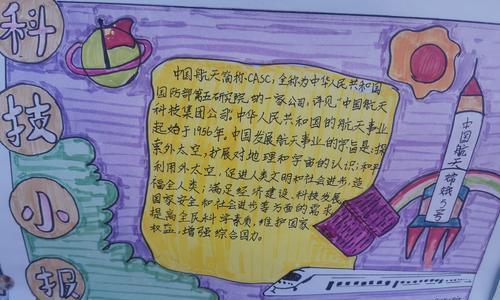 科
技
小
报
中国航天简称CASC,全称为中华人民共和国
国防部第五研究院,的一家公司,详见"中国航天
科技集团公司。中华人民共和国的航天事业
起始于1956年。中国发展航天事业的宗旨是:探
索外太空,扩展对地理和宇宙的认识;和平
利用外太空,促进人类文明和社会进步,造
福全人类;满足经济建设、科技发展、
国家安全和社会进步等方面的需求,
提高全民科学素质,维护国家
权益,增强综合国力。
中国航天嫦娥5号